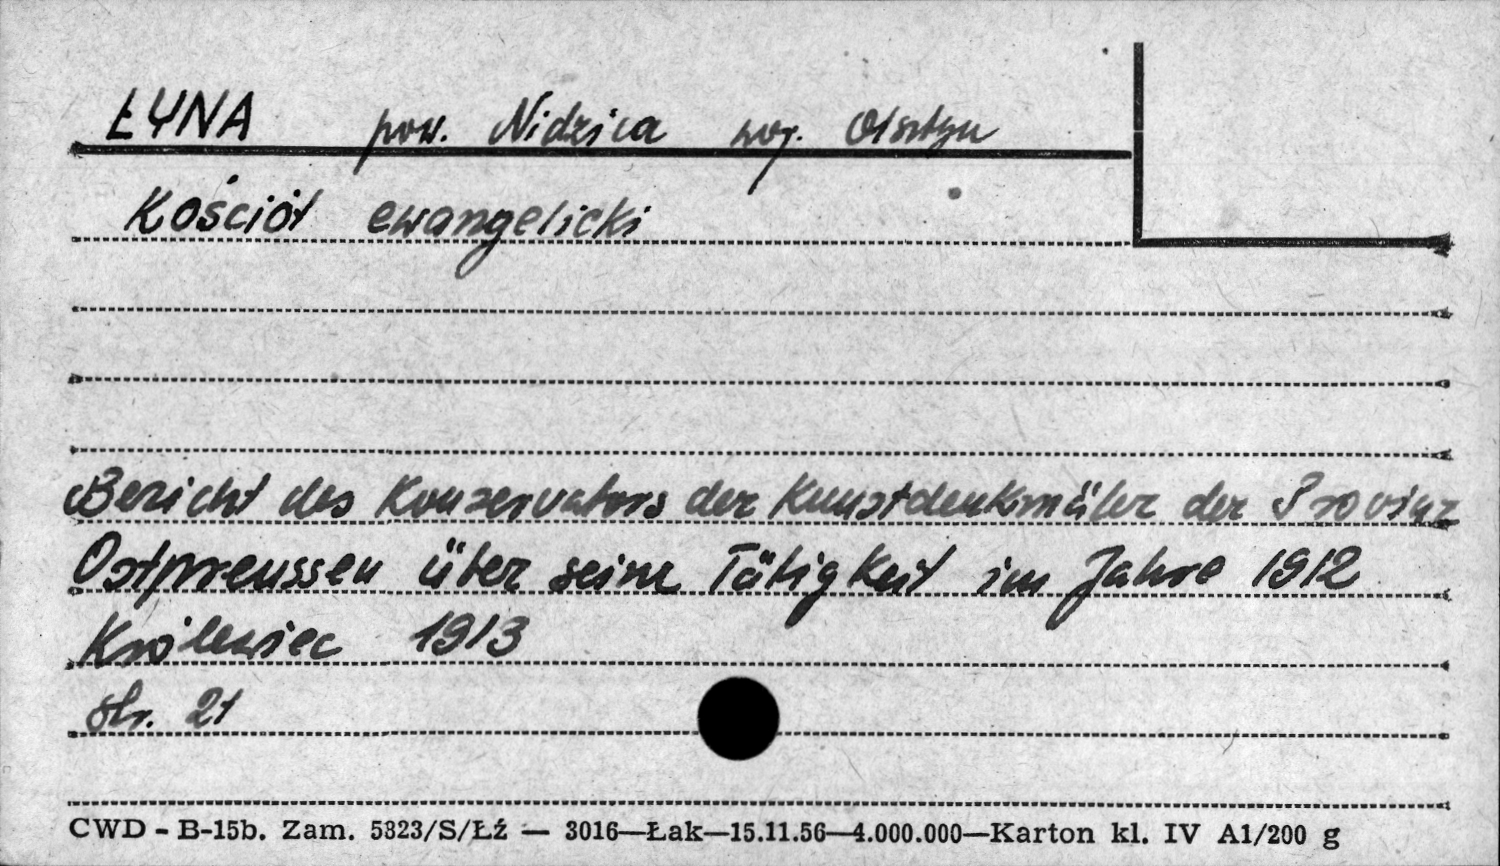 ŁYNA pow. Nidzica woj. Olsztyn
Kościół ewangelicki
Bericht des Konservators der Kunstdenkmäler der Provinz
Ostpreussen über seine Tätigkeit im Jahre 1912
Królewiec 1913
str. 21
CWD - B-15b. Zam. 5823/S/Łź — 3016—Łak—15.11.56—4.000.000—Karton kl. IV A1/200 g